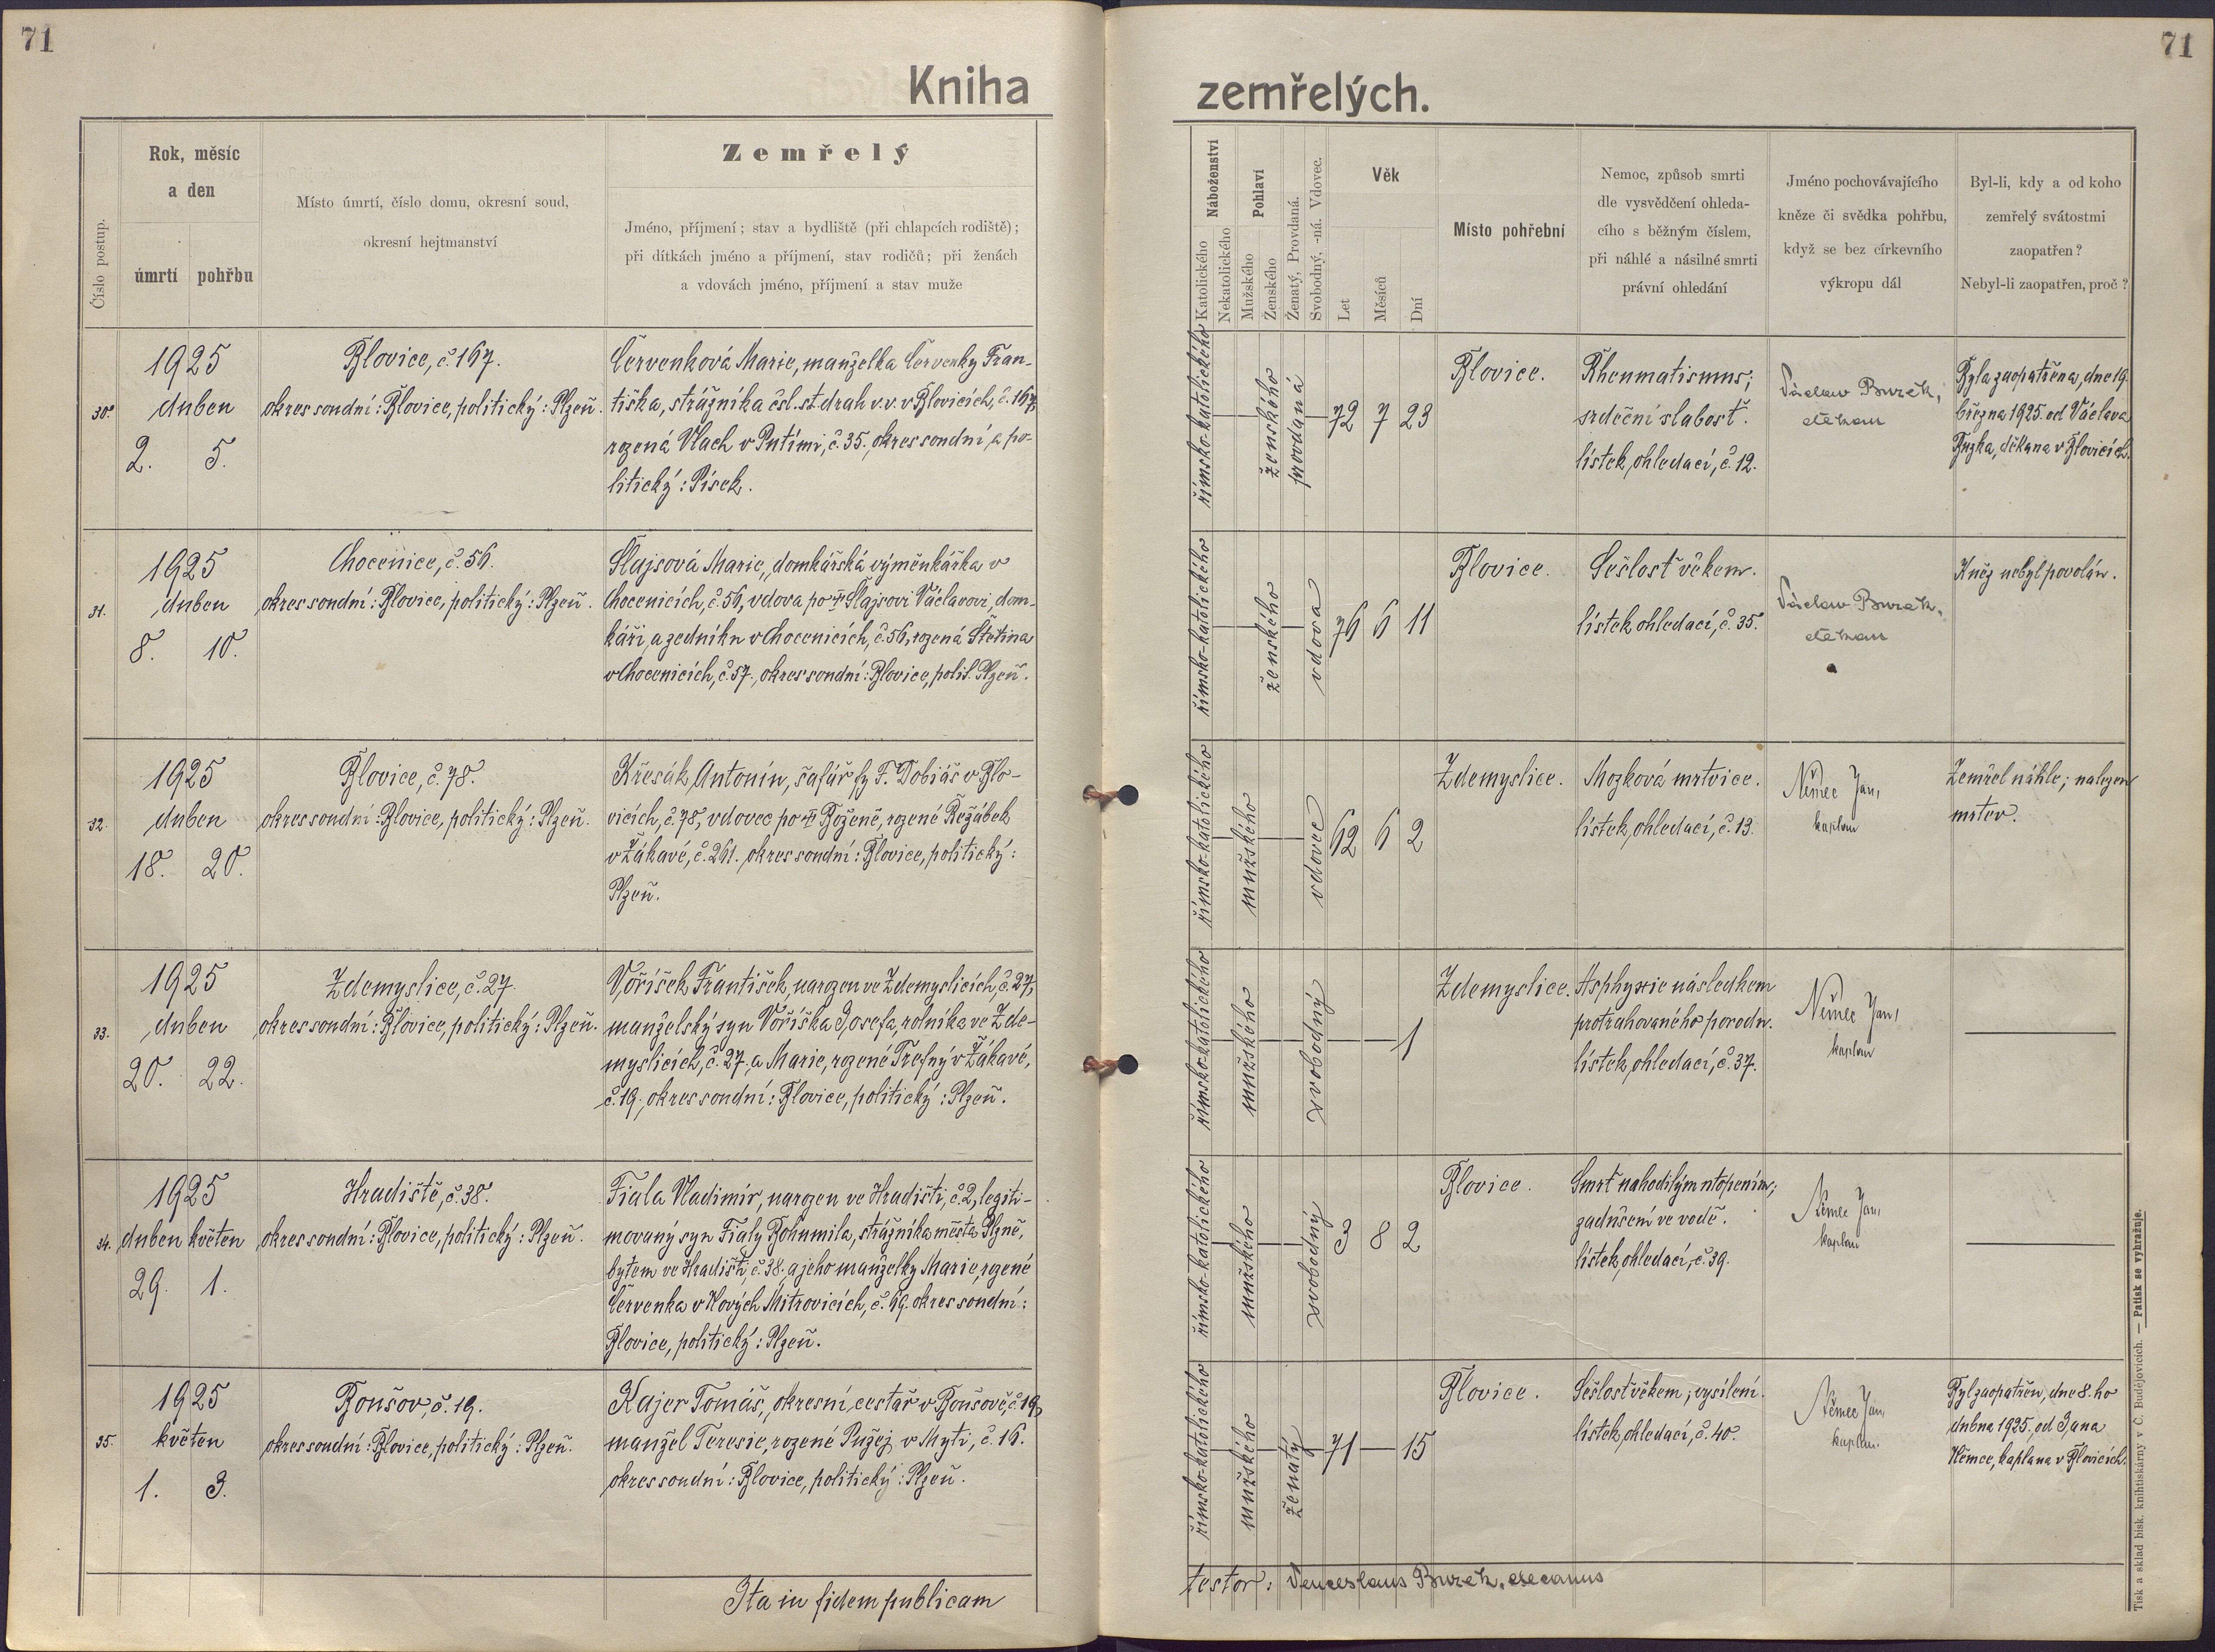 71
71
Kniha zemřelých.
Číslo postup.
Rok, měsíc
a den
úmrtí pohřbu
Místo úmrtí, číslo domu, okresní soud,
okresní hejtmanství
Zemřelý
Jméno, příjmení; stav a bydliště (při chlapcích rodiště);
při dítkách jméno a příjmení, stav rodičů; při ženách
a vdovách jméno, příjmení a stav muže
Náboženství
Katolického
Nekatolického
Pohlaví
Mužského
Ženského
Ženatý, Provdaná.
Svobodný, -ná. Vdovec.
Věk
Let
Měsíců
Dní
Místo pohřební
Nemoc, způsob smrti
dle vysvědčení ohleda-
cího s běžným číslem,
při náhlé a násilné smrti
právní ohledání
Jméno pochovávajícího
kněze či svědka pohřbu,
když se bez církevního
výkropu dál
Byl-li, kdy a od koho
zemřelý svátostmi
zaopatřen?
Nebyl-li zaopatřen, proč?
30.
1925
duben
2. 5.
Blovice, č. 167.
okres soudní: Blovice, politický: Plzeň.
Červenková Marie, manželka Červenky Fran-
tiška, strážníka čsl. st. drah v. v. v Blovicích, č. 167,
rozená Vlach v Putimi, č. 35. okres soudní a po-
litický: Písek.
římsko-katolického
ženského
provdaná
72 7 23
Blovice.
Rheumatismus;
srdeční slabosť.
lístek ohledací, č. 12.
Václav Buzek,
děkan
Byla zaopatřena, dne 19.
března 1925. od Václava
Buzka, děkana v Blovicích.
31.
1925
duben
8. 10.
Chocenice, č. 56.
okres soudní: Blovice, politický: Plzeň.
Šlajsová Marie, domkářská výměnkářka v
Chocenicích, č. 56, vdova po † Šlajsovi Václavovi, dom-
káři a zedníku v Chocenicích, č. 56, rozená Štětina
v Chocenicích, č. 57., okres soudní: Blovice, polit. Plzeň.
římsko-katolického
ženského
vdova
76 6 11
Blovice.
Sešlosť věkem.
lístek ohledací, č. 35.
Václav Buzek,
děkan
Kněz nebyl povolán.
32.
1925
duben
18. 20.
Blovice, č. 78.
okres soudní: Blovice, politický: Plzeň.
Křesák Antonín, šafář fy F. Dobiáš v Blo-
vicích, č. 78, vdovec po † Boženě, rozené Řežábek
v Žákavé, č. 261. okres soudní: Blovice, politický:
Plzeň.
římsko-katolického
mužského
vdovec
62 6 2
Zdemyslice.
Mozková mrtvice.
lístek ohledací, č. 13.
Němec Jan,
kaplan
Zemřel náhle; nalezen
mrtev.
33.
1925
duben
20. 22.
Zdemyslice, č. 27.
okres soudní: Blovice, politický: Plzeň.
Voříšek František, narozen ve Zdemyslicích, č. 27,
manželský syn Voříška Josefa, rolníka ve Zde-
myslicích, č. 27. a Marie, rozené Trefný v Žákavé,
č. 19., okres soudní: Blovice, politický: Plzeň.
římsko-katolického
mužského
svobodný
1
Zdemyslice.
Asphyxie následkem
protrahovaného porodu.
lístek ohledací, č. 37.
Němec Jan,
kaplan
34.
1925
duben květen
29. 1.
Hradiště, č. 38.
okres soudní: Blovice, politický: Plzeň.
Fiala Vladimír, narozen ve Hradišti, č. 2, legiti-
movaný syn Fialy Bohumila, strážníka města Plzně,
bytem ve Hradišti, č. 38. a jeho manželky Marie, rozené
Červenka v Nových Mitrovicích, č. 69. okres soudní:
Blovice, politický: Plzeň.
římsko-katolického
mužského
svobodný
3 8 2
Blovice.
Smrť nahodilým utopením;
zadušení ve vodě.
lístek ohledací, č. 39.
Němec Jan,
kaplan
35.
1925
květen
1. 3.
Boušov, č. 19.
okres soudní: Blovice, politický: Plzeň.
Kajer Tomáš, okresní cestář v Boušově, č. 19,
manžel Teresie, rozené Pužej v Mýti, č. 16.
okres soudní: Blovice, politický: Plzeň.
římsko-katolického
mužského
ženatý
71 15
Blovice.
Sešlosť věkem; vysílení.
lístek ohledací, č. 40.
Němec Jan,
kaplan.
Byl zaopatřen, dne 8. ho
dubna 1925. od Jana
Němce, kaplana v Blovicích.
Ita in fidem publicam
testor: Venceslaus Buzek, decanus
Tisk a sklad bisk. knihtiskárny v Č. Budějovicích. — Patisk se vyhražuje.